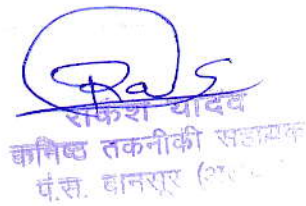 राकेश यादव
कनिष्ठ तकनीकी सहायक
पं.स. बानसूर